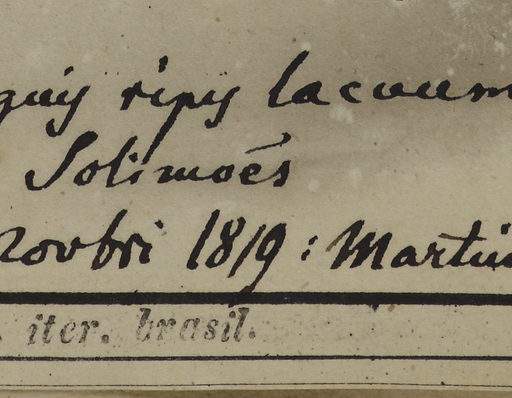 ripis lacuum
Solimoés
Novbri 1819: Martiu
. iter. brasil.